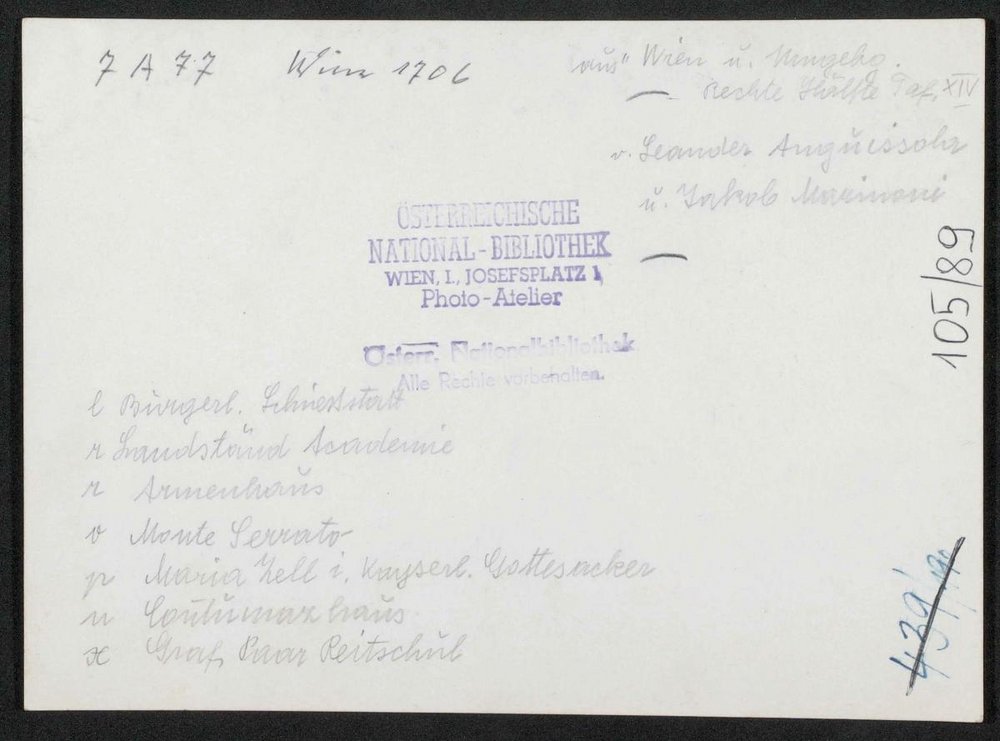 7 A 77 Wien 1706
aus" Wien u. Umgebg.
— Rechte Hälfte Taf. XIV
v. Leander Anguissola
u. Jakob Marinoni
—
ÖSTERREICHISCHE
NATIONAL-BIBLIOTHEK
WIEN, I., JOSEFSPLATZ 1,
Photo-Atelier
Österr. Nationalbibliothek
Alle Rechte vorbehalten.
l Bürgerl. Schiessstatt
r Landständ Academie
r Armenhaus
o Monte Serrato
p Maria Zell i. Kayserl. Gottesacker
n Contumazhaus
x Graf Paar Reitschul
105/89
439/190